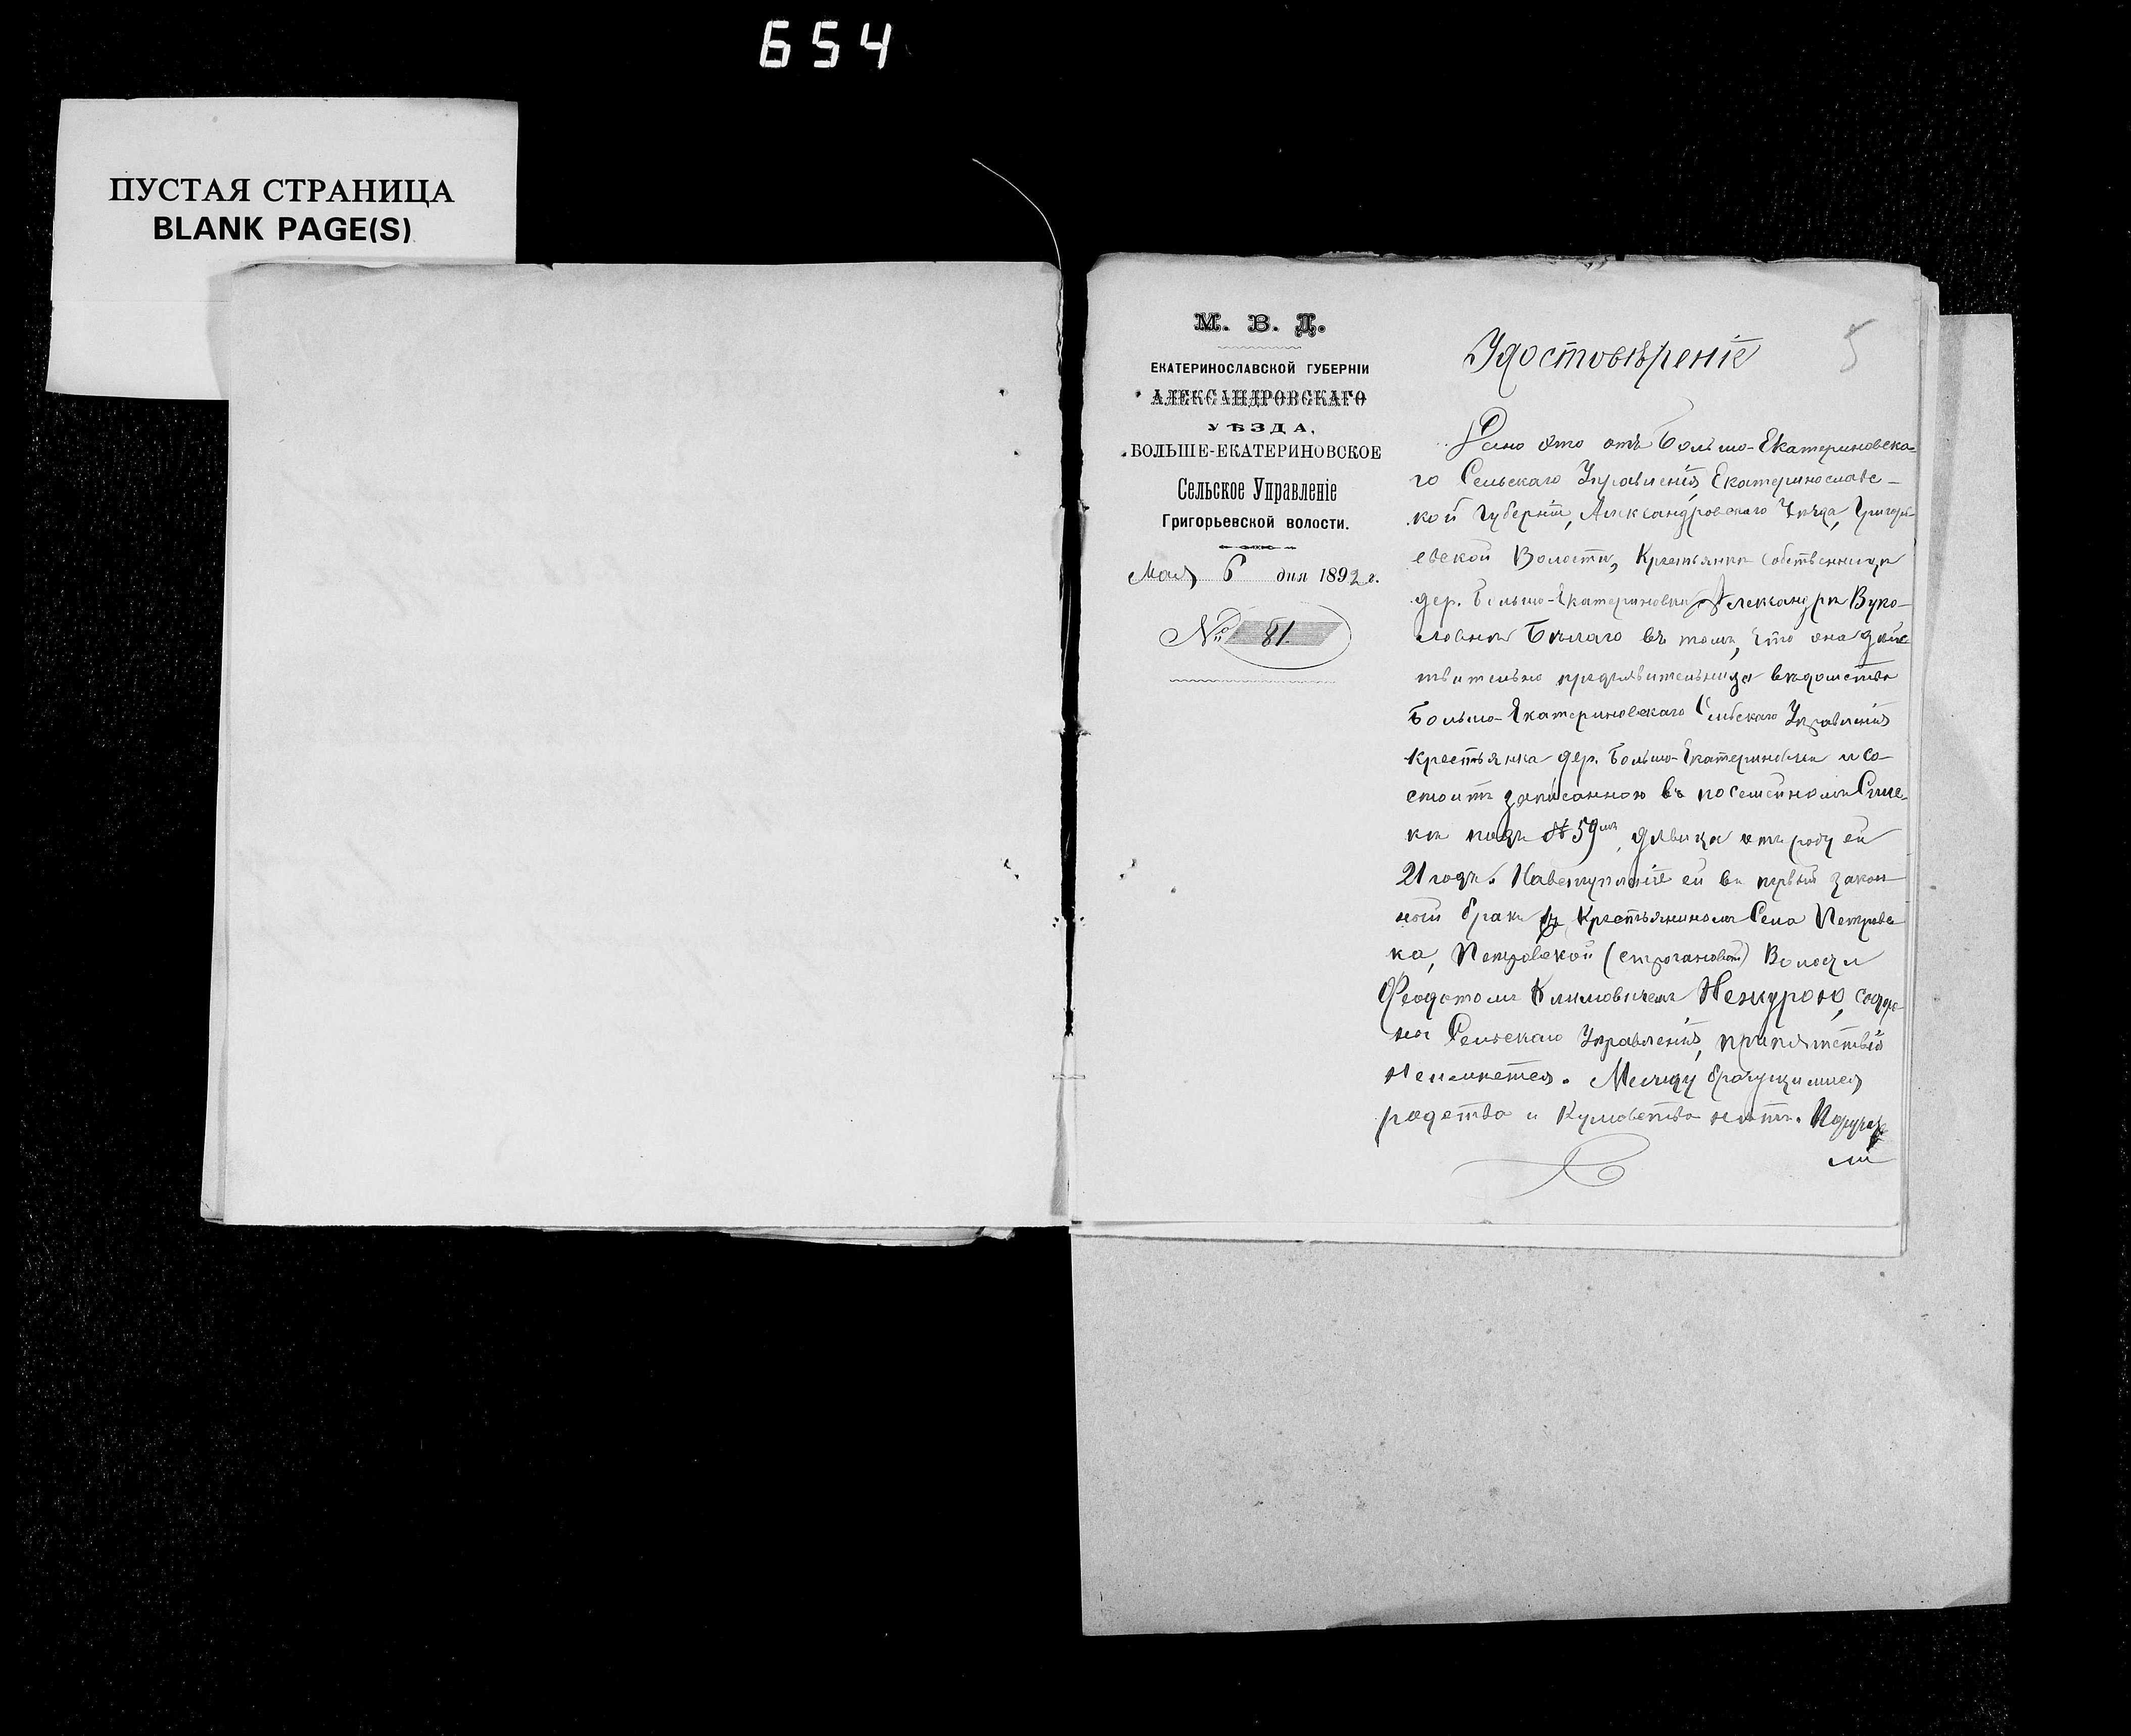 654
ПУСТАЯ СТРАНИЦА
BLANK PAGE(S)
М. В. Д.
ЕКАТЕРИНОСЛАВСКОЙ ГУБЕРНІИ
АЛЕКСАНДРОВСКАГО
УѢЗДА,
БОЛЬШЕ-ЕКАТЕРИНОВСКОЕ
Сельское Управленіе
Григорьевской волости.
Мая 6 дня 1892 г.
№ 81
5
Удостовѣреніе
Дано это отъ Больше-Екатериновска-
го Сельскаго Управленія, Екатеринославс-
кой Губерніи, Александровскаго Уѣзда, Григорь-
евской Волости, Крестьянки Собственницы
дер. Больше-Екатериновки Александры Вуко-
ловны Бѣлаго въ томъ, что она дѣйс-
твительно предъявительница вѣдомства
Больше-Екатериновскаго Сельскаго Управленія
Крестьянка дер. Больше-Екатериновки и со-
стоитъ записанною въ посемейномъ Спис-
кѣ подъ № 59мъ, дѣвица отъ роду ей
21 годъ. На вступленіе ей въ первый закон-
ный бракъ съ Крестьяниномъ Села Петровс-
ка, Петровской (строгановой) Волости
Феодотомъ Климовичемъ Нежурою, со стор-
ны Сельскаго Управленія, препятствій
неимѣется. Между брачущимися
родства и Кумовства нѣтъ. Поручате-
ли